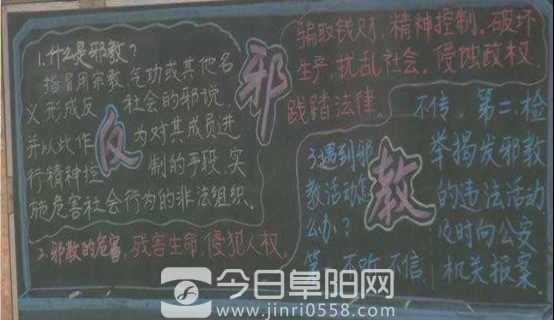 反
邪
教
1.什么是邪教?
指冒用宗教气功或其他名
义形成反社会的邪说,
并以此作为对其成员进
行精神控制的手段,实
施危害社会行为的非法组织。
2.邪教的危害,残害生命,侵犯人权,
骗取钱财,精神控制、破坏
生产,扰乱社会、侵蚀政权
践踏法律。
3.遇到邪
教活动怎
么办?
不听不信
不传,第二、检
举揭发邪教
的违法活动
及时向公安
机关报案。
今日阜阳网
www.jinri0558.com